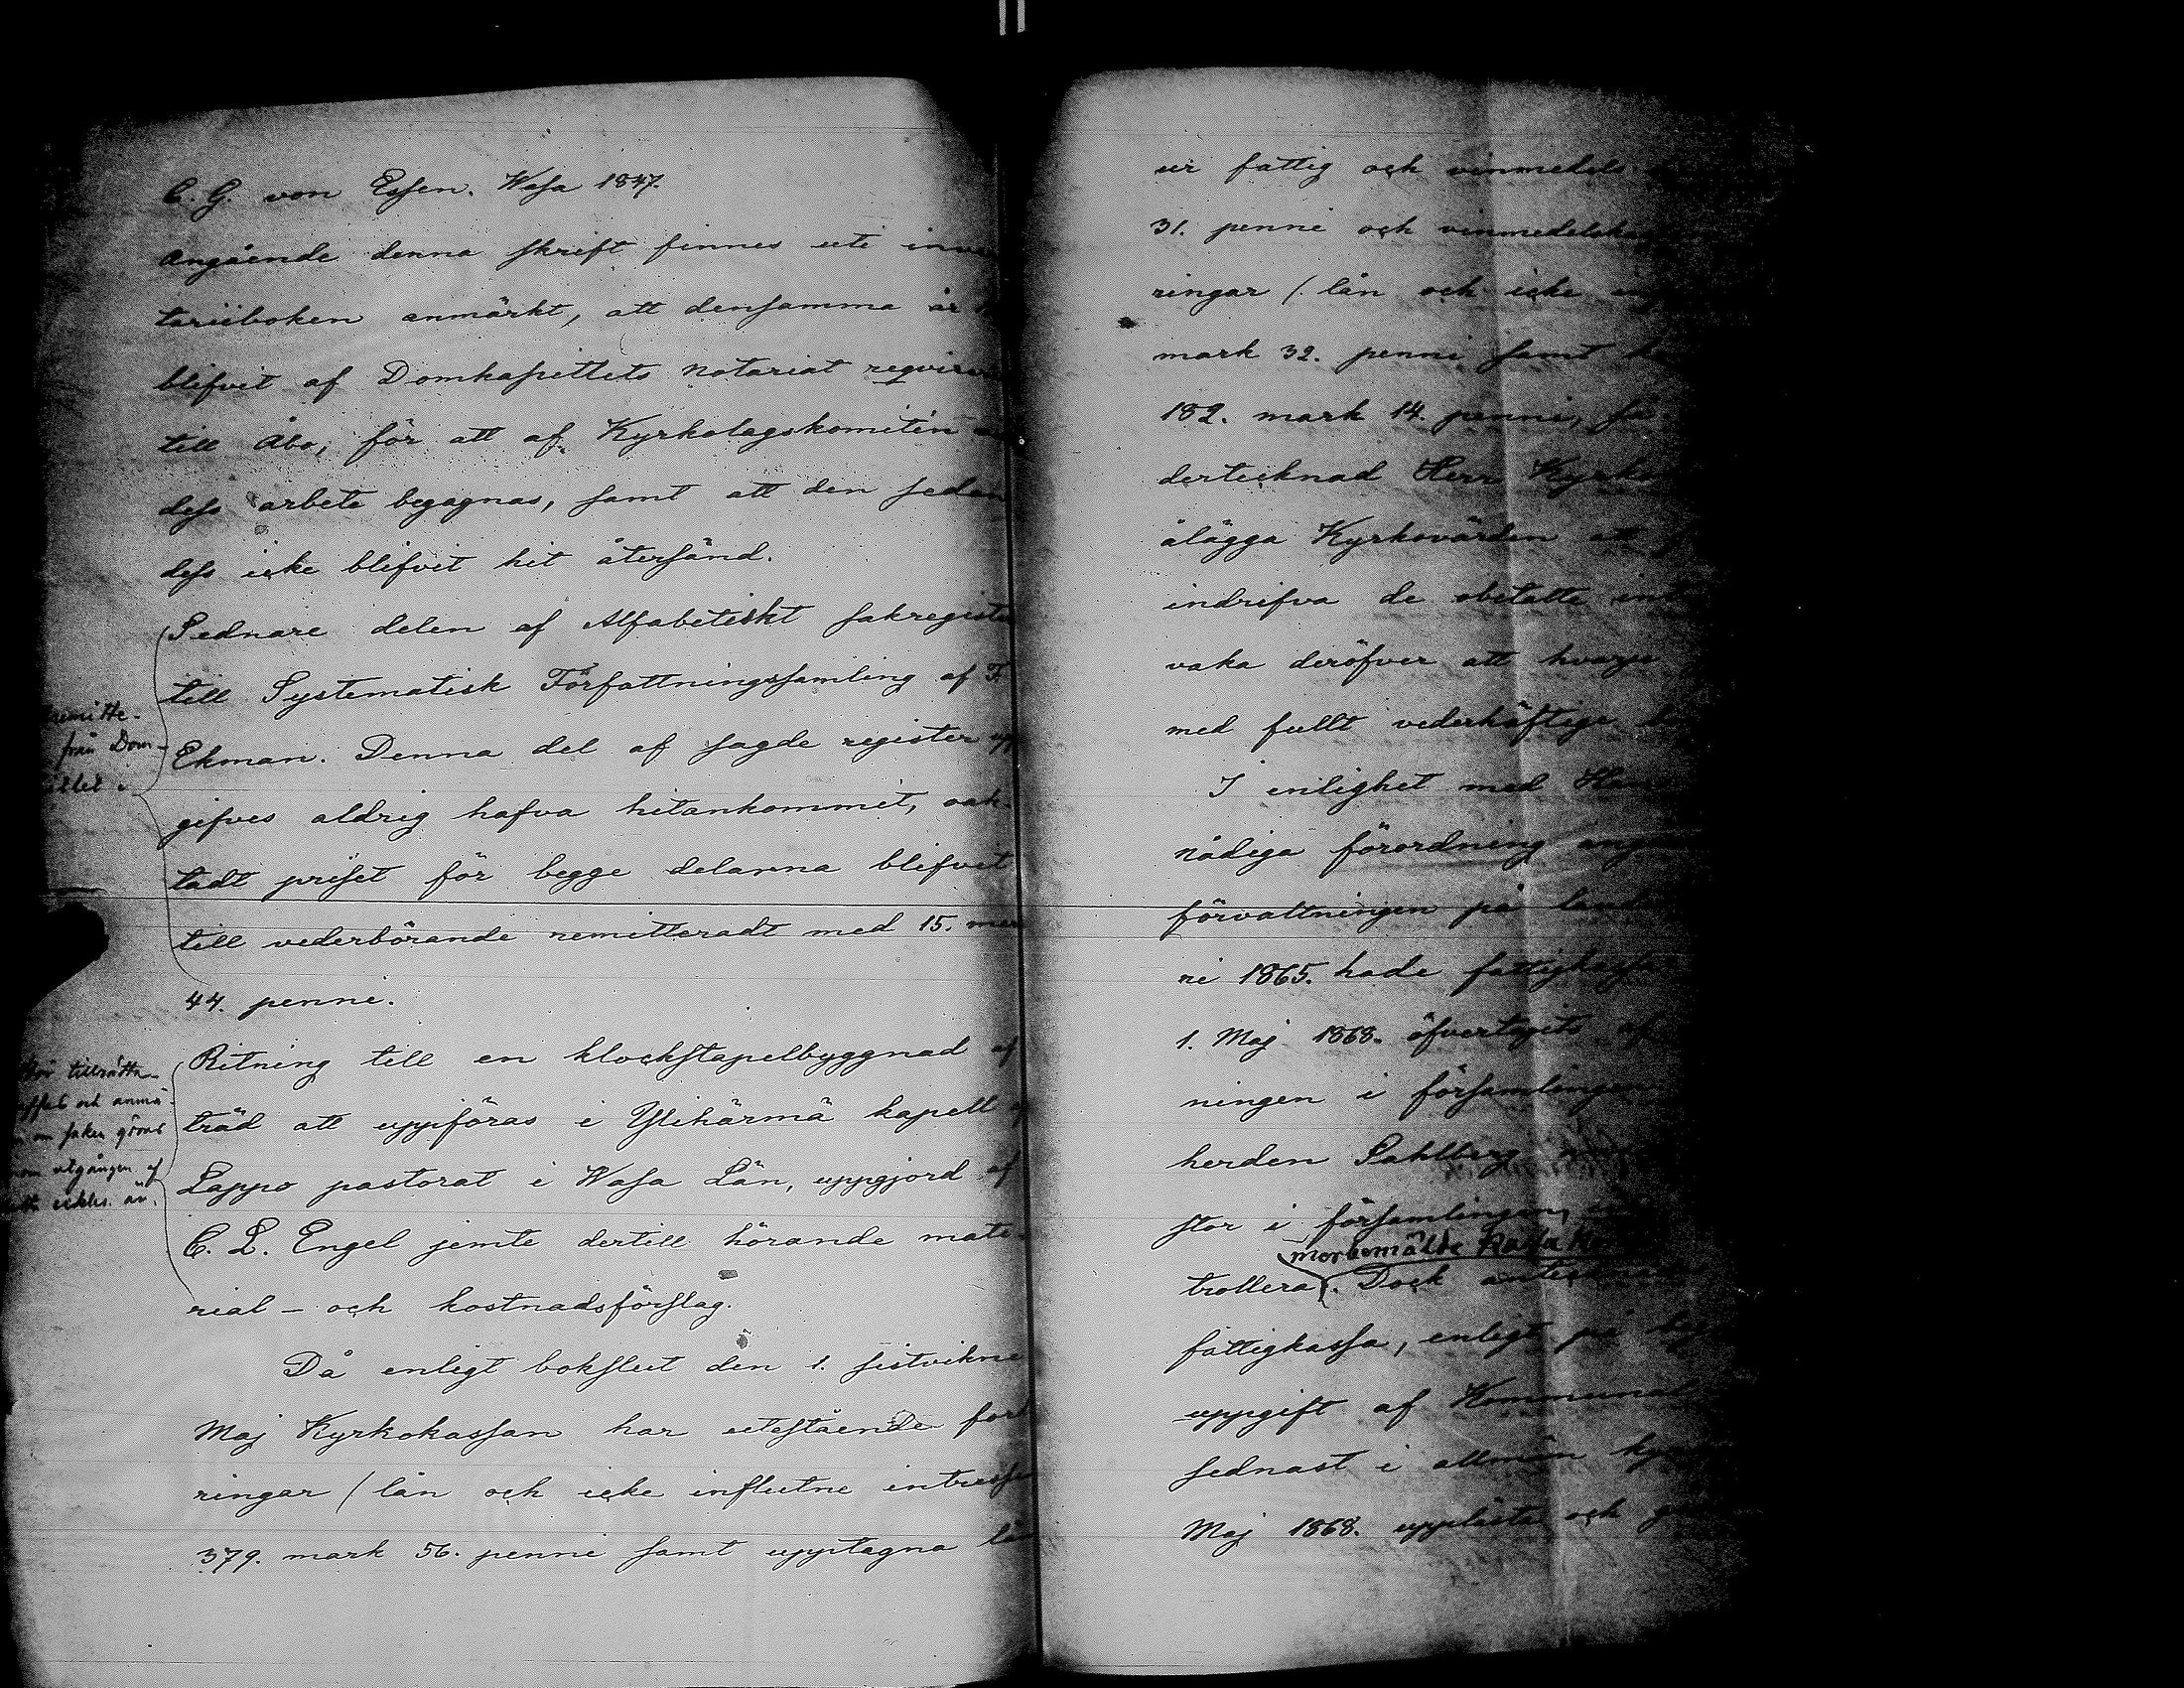 C. G. von Essen. Wasa 1847.
Angående denna skrift finnes uti inven
tariiboken anmärkt, att densamma är
blifvit af Domkapittlets notariat reqvirer
till Åbo, för att af Kyrkolagskomitén
dess arbete begagnas, samt att den sedan
dess icke blifvit hit återsänd.
Sednare delen af Alfabetiskt sakregister
till Systematisk Författningssamling af F.
Ekman. Denna del af sagde register upp
gifves aldrig hafva hitankommit, oak-
tadt priset för begge delarna blifvet
till vederbörande remitteradt med 15. mark
44. penni.
Ritning till en klockstapelbyggnad af
träd att uppföras i Ylihärmä kapell af
Lappo pastorat i Wasa Län, uppgjord af
C. L. Engel jemte dertill hörande mate-
rial - och kostnadsförslag.
Då enligt bokslut den 1. sistvikne
Maj Kyrkokassan har utestående ford
ringar (lån och icke influtne intressen
379. mark 56. penni samt upptagna lån
remitte-
från Dom-
tillrätta-
och anmä-
om saken göras
utgången af
eckles. år.
ur fattig och vinmedels
31. penni och vinmedelskas
ringar (lån och icke
mark 32. penni samt
182. mark 14. penni, få
dertecknad Herr Kyrko
ålägga Kyrkovärden att
indrifva de obetalte int
vaka deröfver att hvarje
med fullt vederhäftige
I enlighet med Han
nådiga förordning ang
förvaltningen på land
ri 1865. hade fattigkassa
1. Maj 1868. öfvertagits af
ningen i församlingen
herden Sahlberg
stor i församlingen,
merbemälte Kassa
trollera. Dock anteckna
fattigkassa, enligt på
uppgift af Kommunal
sednast i allmän ky
Maj 1868. uppläste och